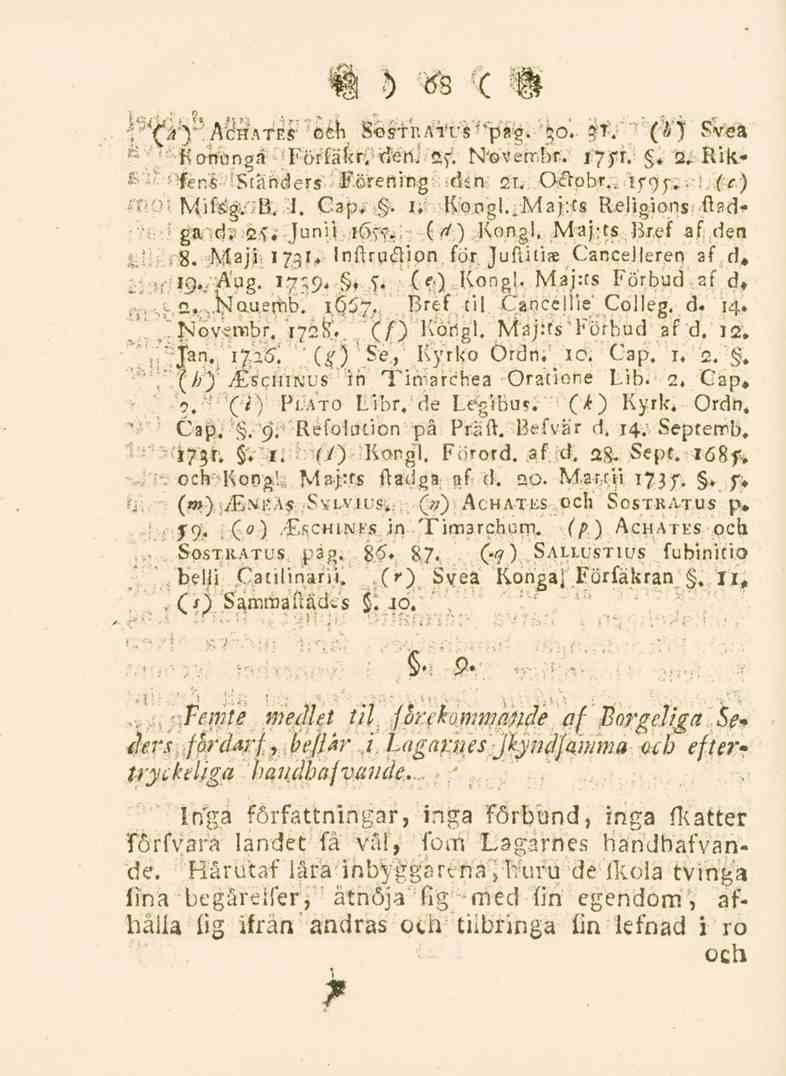 ) 68 (
(a) ACHATES och SOSTRATUS pag. 30. 31. (b) Svea
Konunga Förſäkr. den. 25. Novembr. 1751. §. 2. Rik-
ſens Ständers Förening den 21. Octobr. 1595. (c)
Miſsg. B. I. Cap. §. 1. Kongl. Maj:ts Religions ſtad-
ga d. 25. Junii 1655. (d) Kongl. Maj:ts Bref af den
8. Maji 1731. Inſtruction för Juſtitiæ Cancelleren af d.
19. Aug. 1739. §. 5. (e) Kongl. Maj:ts Förbud af d.
2. Nouemb. 1667. Bref til Cancellie Colleg. d. 14.
Novembr. 1728. (f) Kongl. Maj:ts Förbud af d. 12.
Jan. 1726. (g) Se, Kyrko Ordn. 10. Cap. 1. 2. §.
(h) ÆSCHINUS in Timarchea Oratione Lib. 2. Cap.
9. (i) PLATO Libr. de Legibus. (k) Kyrk. Ordn.
Cap. §. 9. Reſolution på Präſt. Beſvär d. 14. Septemb.
1731. §. 1. (l) Kongl. Förord. af d. 28. Sept. 1685.
och Kongl. Maj:ts ſtadga af d. 20. Martii 1735. §. 5.
(m) ÆNEAS SYLVIUS. (n) ACHATES och SOSTRATUS p.
59. (o) ÆSCHINES in Timarchum. (p) ACHATES och
SOSTRATUS pag. 86. 87. (q) SALLUSTIUS ſubinitio
belli Catilinarii. (r) Svea Konga Förſäkran §. 11.
(s) Sammaſtädes §. 10.
§. 9.
Femte medlet til förekommande af Borgeliga Se-
ders förderf, beſtår i Lagarnes ſkyndſamma och efter-
tryckeliga handhafvande.
Inga författningar, inga förbund, inga ſkatter
förſvara landet ſå väl, ſom Lagarnes handhafvan-
de. Härutaf lära inbyggarena, huru de ſkola tvinga
ſina begäreiſer, åtnöja ſig med ſin egendom, af-
hålla ſig ifrån andras och tilbringa ſin lefnad i ro
och